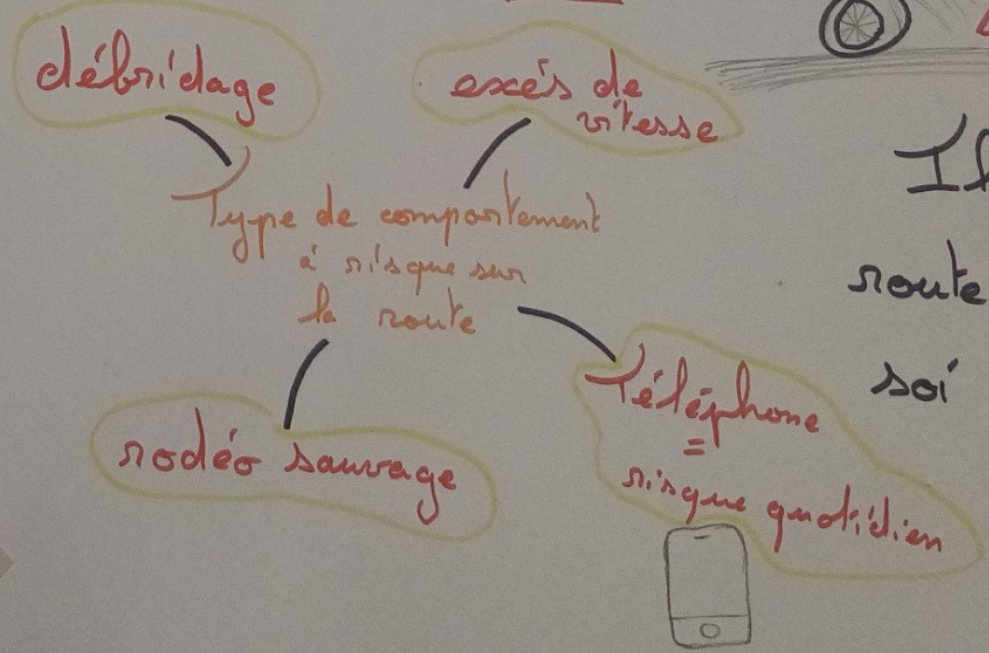 débridage
excés de
vitesse
Type de comportement
à risque sur
la route
rodéo sauvage
Téléphone
=
risque quotidien
Il
route
soi